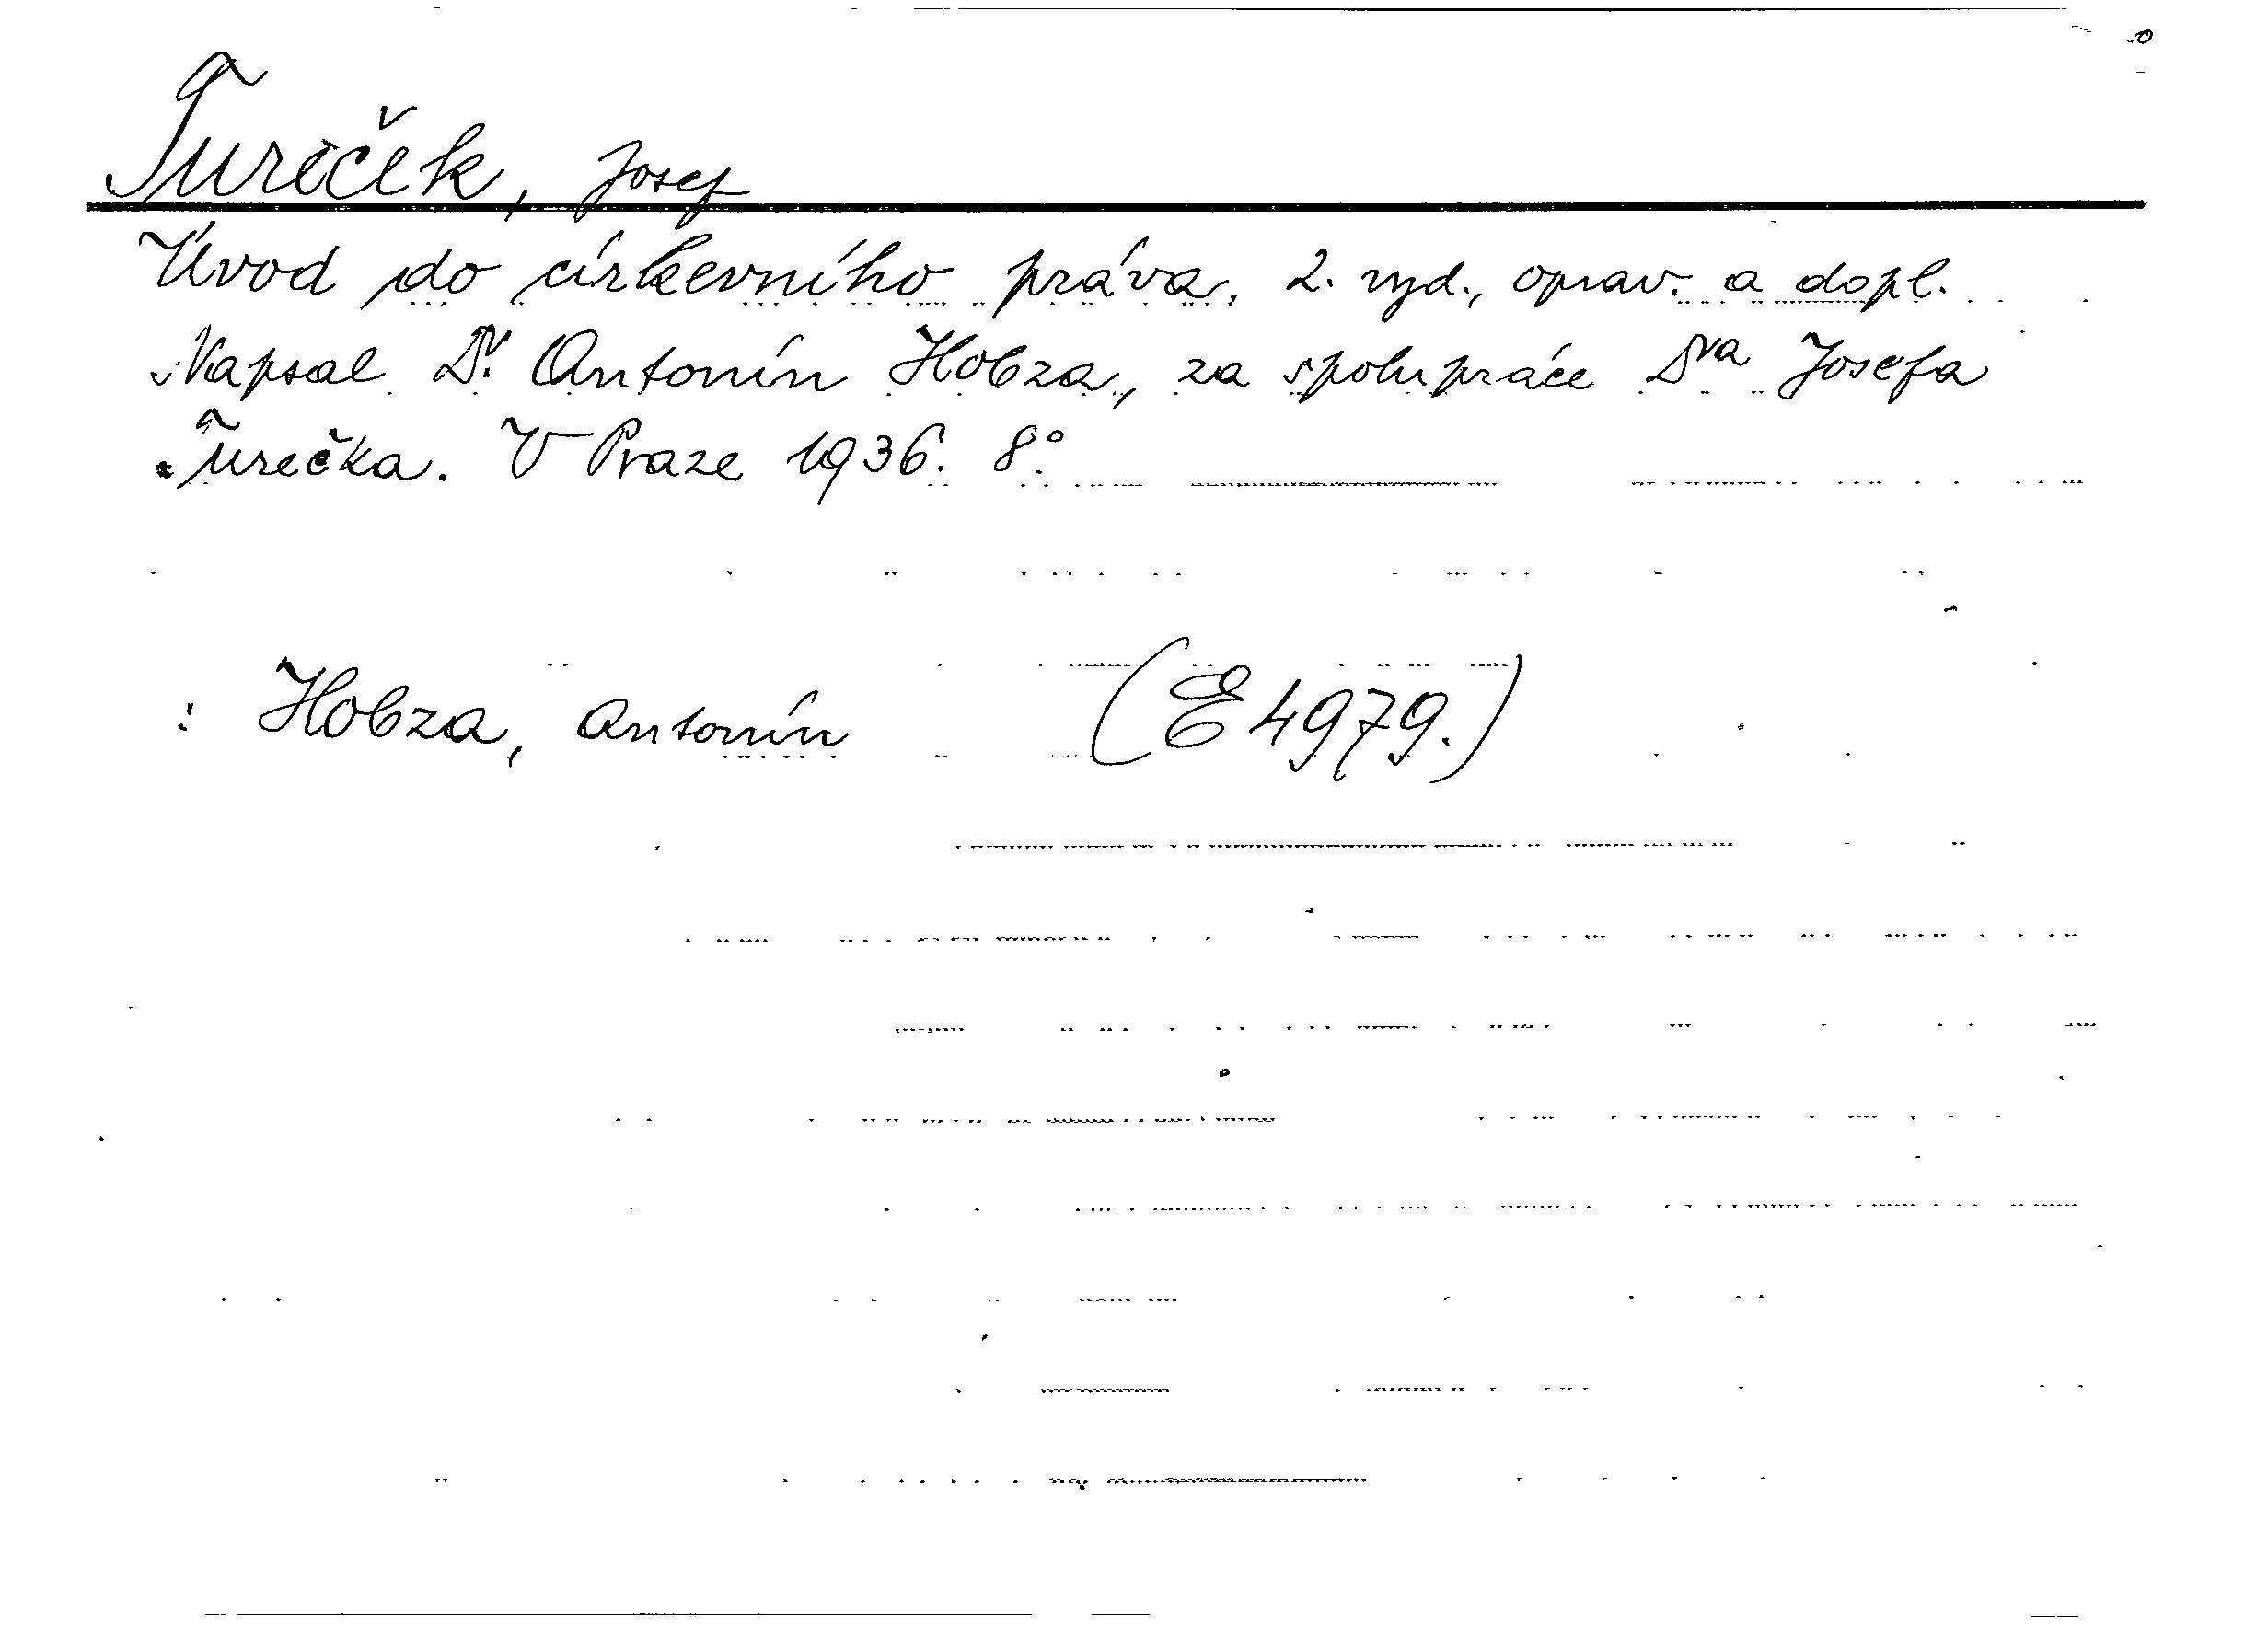 Tureček, Josef
Úvod do církevního práva. 2. vyd., oprav. a dopl.
Napsal Dr. Antonín Hobza, za spolupráce Dra Josefa
Turečka. V Praze 1936. 8°.
: Hobza, Antonín (E 4979.)